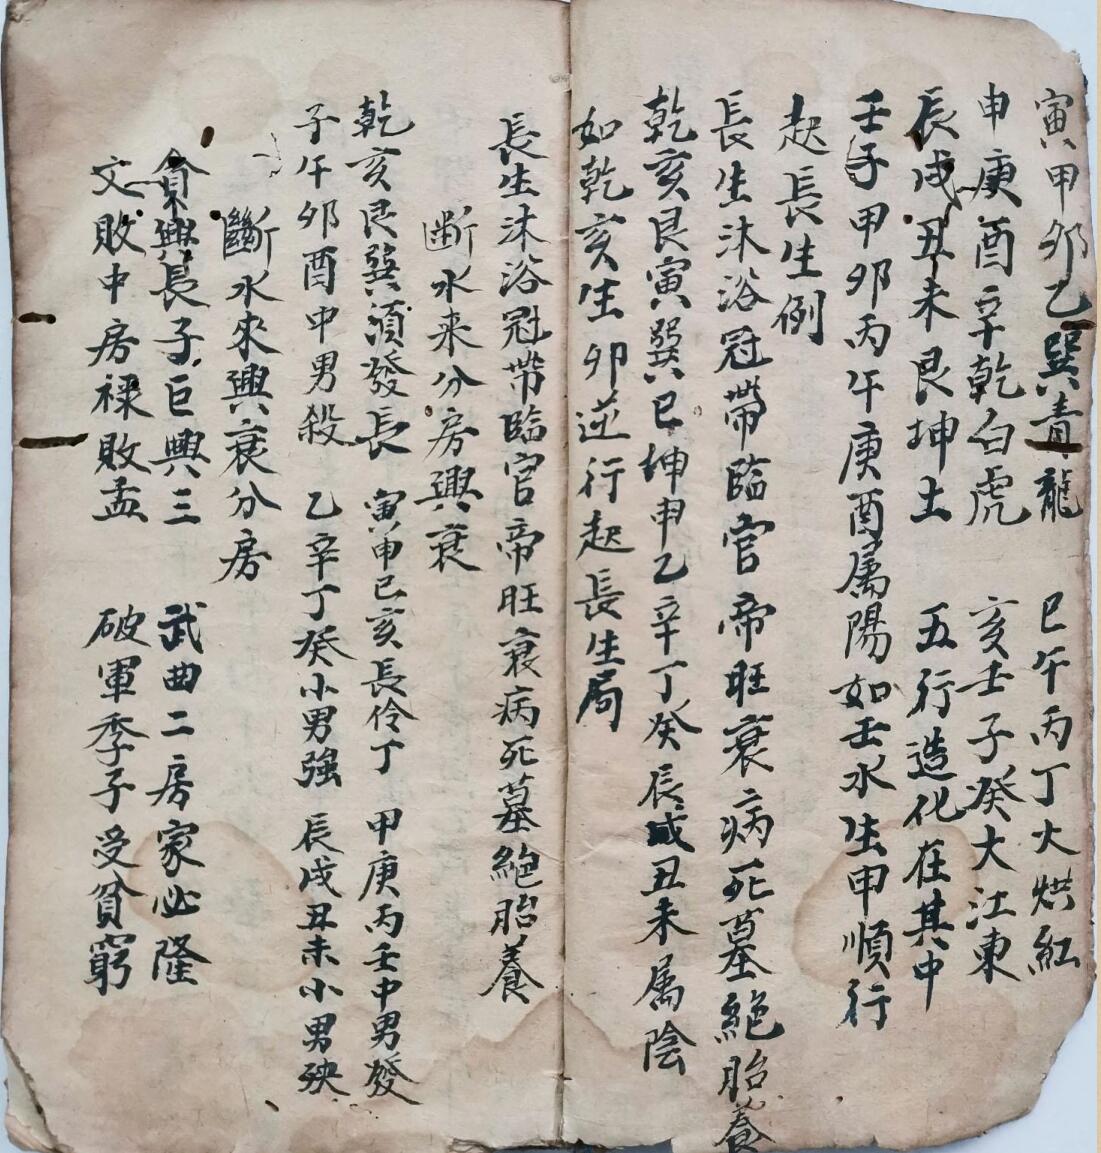 寅甲卯乙巽青龍　巳午丙丁火烘紅
申庚酉辛乾白虎　亥壬子癸大江東
辰戌丑未艮坤土　五行造化在其中
壬子甲卯丙午庚酉属陽如壬水生申順行
起長生例
長生沐浴冠帶臨官帝旺衰病死墓絕胎養
乾亥艮寅巽巳坤申乙辛丁癸辰戌丑未属陰
如乾亥生卯逆行起長生局
長生沐浴冠帶臨官帝旺衰病死墓絕胎養
断水来分房興衰
乾亥艮巽須發長　寅申巳亥長伶丁　甲庚丙壬中男發
子午卯酉中男殺　乙辛丁癸小男強　辰戌丑未小男殃
斷水來興衰分房
貪興長子巨興三　武曲二房家必隆
文敗中房祿敗孟　破軍季子受貧窮